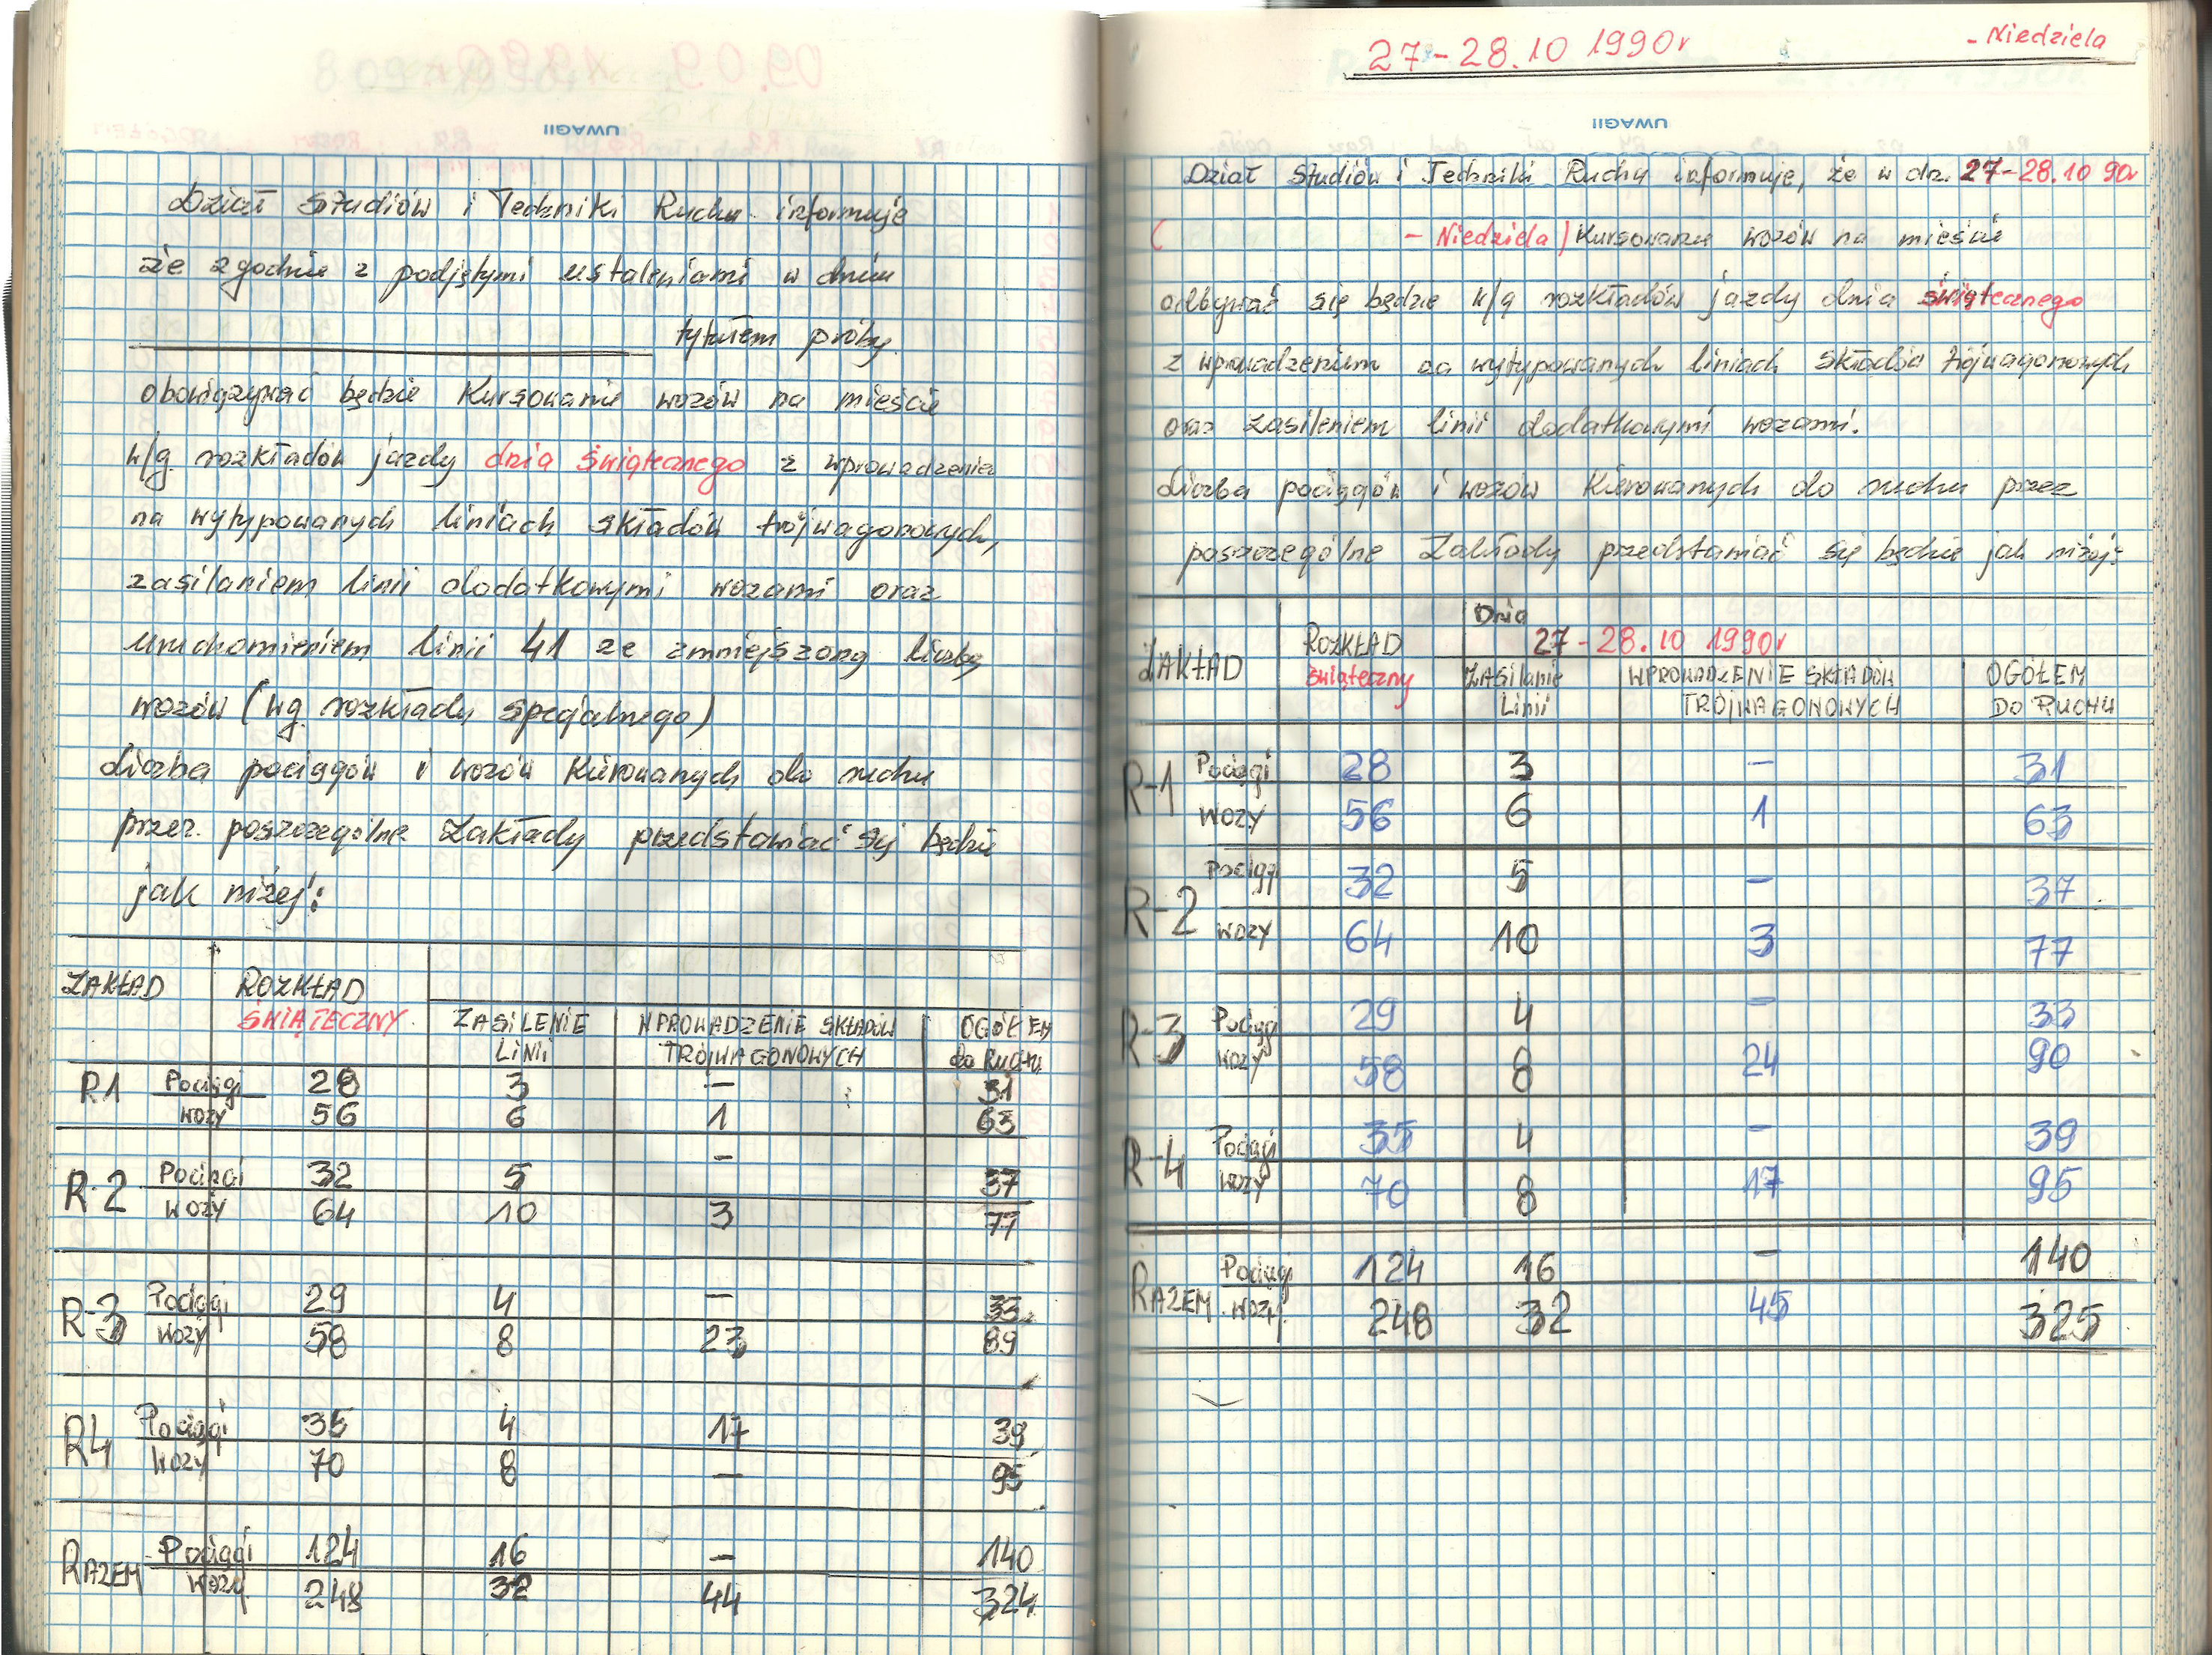 UWAGI!
Dział Studiów i Techniki Ruchu informuje
że zgodnie z podjętymi ustaleniami w dniu
tytułem próby
obowiązywać będzie kursowanie wozów na mieście
w/g rozkładów jazdy dnia świątecznego z wprowadzeniem
na wytypowanych liniach składów trójwagonowych,
zasilaniem linii dodatkowymi wozami oraz
uruchomieniem linii 41 ze zmniejszoną liczbą
wozów (wg. rozkłady specjalnego)
Liczba pociągów i wozów kierowanych do ruchu
przez poszczególne Zakłady przedstawiać się będzie
jak niżej:
ZAKŁAD ROZKŁAD
ŚWIĄTECZNY ZASILENIE WPROWADZENIE SKŁADÓW OGÓŁEM
LINII TRÓJWAGONOWYCH do RUCHU
R1 Pociągi 28 3 – 31
WOZY 56 6 1 63
R-2 Pociągi 32 5 – 37
WOZY 64 10 3 77
R-3 Pociągi 29 4 – 33
WOZY 58 8 23 89
R4 Pociągi 35 4 17 39
WOZY 70 8 – 95
RAZEM Pociągi 124 16 – 140
WOZY 248 32 44 324
27-28.10 1990r - Niedziela
UWAGI!
Dział Studiów i Techniki Ruchu informuje, że w dn. 27-28.10 90r
( - Niedziela) kursowanie wozów na mieście
odbywać się będzie w/g rozkładów jazdy dnia świątecznego
z wprowadzeniem na wytypowanych liniach składów trójwagonowych
oraz zasileniem linii dodatkowymi wozami.
Liczba pociągów i wozów kierowanych do ruchu przez
poszczególne Zakłady przedstawiać się będzie jak niżej:
Dnia
ZAKŁAD ROZKŁAD 27-28.10 1990r
świąteczny ZASilanie WPROWADZENIE SKŁADÓW OGÓŁEM
Linii TRÓJWAGONOWYCH DO RUCHU
R-1 Pociągi 28 3 – 31
WOZY 56 6 1 63
R-2 Pociągi 32 5 – 37
WOZY 64 10 3 77
R-3 Pociągi 29 4 – 33
WOZY 58 8 24 90
R-4 Pociągi 35 4 – 39
WOZY 70 8 17 95
RAZEM Pociągi 124 16 – 140
WOZY 248 32 45 325